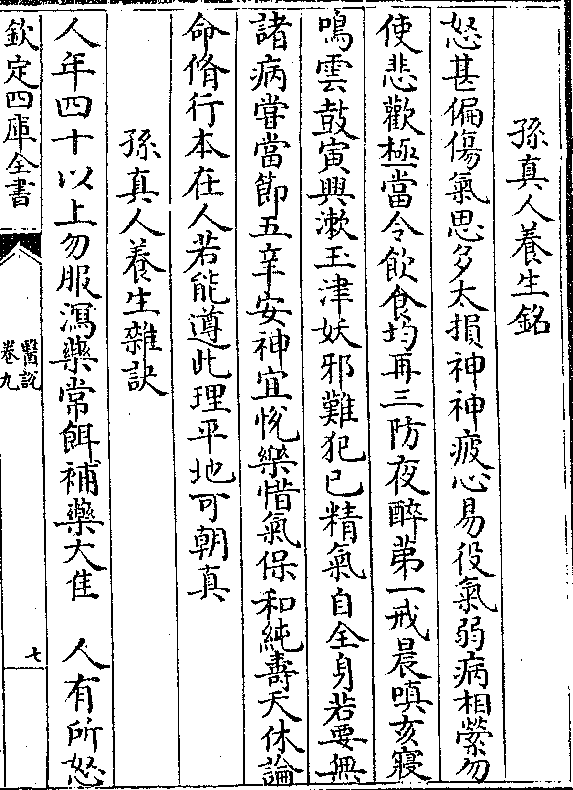 孫真人養生銘
怒甚偏傷氣思多太損神神疲心易役氣弱病相縈勿
使悲歡極當令飲食均再三防夜醉第一戒晨嗔亥寢
鳴雲鼓寅興漱玉津妖邪難犯已精氣自全身若要無
諸病嘗當節五辛安神宜悅樂惜氣保和純壽夭休論
命脩行本在人若能遵此理平地可朝真
孫真人養生雜訣
人年四十以上勿服瀉藥常餌補藥大佳　人有所怒
欽定四庫全書
醫説
卷九
七